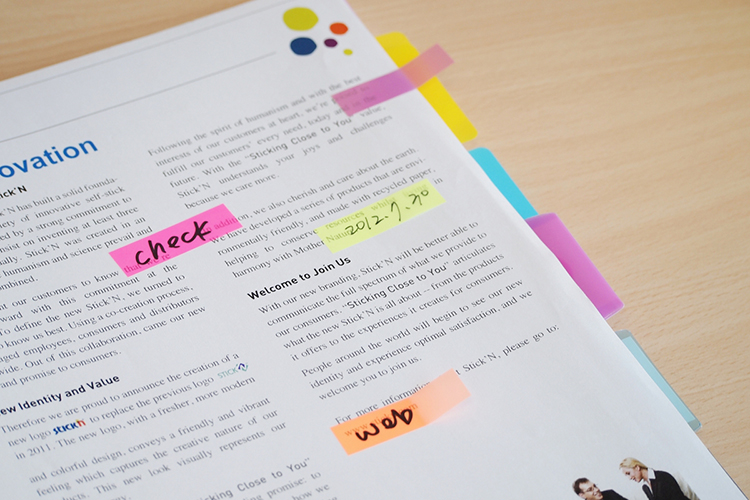 ovation
ick'N
'N has built a solid founda-
ety of innovative self-stick
d by a strong commitment to
sist on inventing at least three
ally. Stick'N was created in an
humanism and science prevail and
mbined.
t our customers to know
ward with this commitment at the
To define the new Stick'N, we turned to
know us best. Using a co-creation process,
ged employees, consumers and distributors
wide. Out of this collaboration, came our new
and promise to consumers.
ew Identity and Value
Therefore we are proud to announce the creation of a
new logo stick'n to replace the previous logo STICK'N
in 2011. The new logo, with a fresher, more modern
and colorful design, conveys a friendly and vibrant
feeling which captures the creative nature of our
products. This new look visually represents our
"Sticking Close to You"
nding promise: to
how we
Following the spirit of humanism and with the best
interests of our customers at heart, we're
fulfill our customers' every need, today and in the
future. With the "Sticking Close to You" value,
Stick'N understands your joys and challenges
because we care more.
In addition, we also cherish and care about the earth.
We have developed a series of products that are envi-
ronmentally friendly, and made with recycled paper,
helping to conserve resources while
harmony with Mother Nature
Welcome to Join Us
With our new branding, Stick'N will be better able to
communicate the full spectrum of what we provide to
our consumers. "Sticking Close to You" articulates
what the new Stick'N is all about – from the products
it offers to the experiences it creates for consumers.
People around the world will begin to see our new
identity and experience optimal satisfaction, and we
welcome you to join us.
For more information about Stick'N, please go to:
check
2012.7.20
web